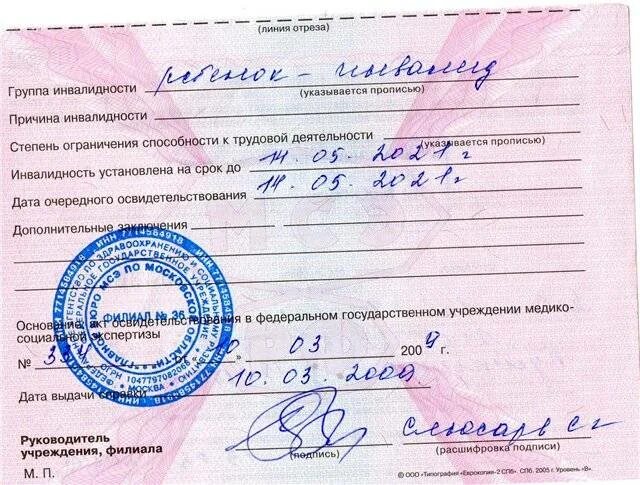 (линия отреза)
Группа инвалидности ребенок - инвалид
(указывается прописью)
Причина инвалидности
Степень ограничения способности к трудовой деятельности
(указывается прописью)
Инвалидность установлена на срок до 14.05.2021 г
Дата очередного освидетельствования 14.05.2021 г
Дополнительные заключения
ИНН 7714584918
ФИЛИАЛ № 36
ОГРН 1047797082066
МОСКВА
Основание: акт освидетельствования в федеральном государственном учреждении медико-
социальной экспертизы
№ от « 10 » 03 2009 г.
Дата выдачи справки 10.03.2009
Руководитель
учреждения, филиала
(подпись)
(расшифровка подписи)
М. П.
© ООО «Типография «Еврокопия-2 СПб». СПб. 2005 г. Уровень «В».